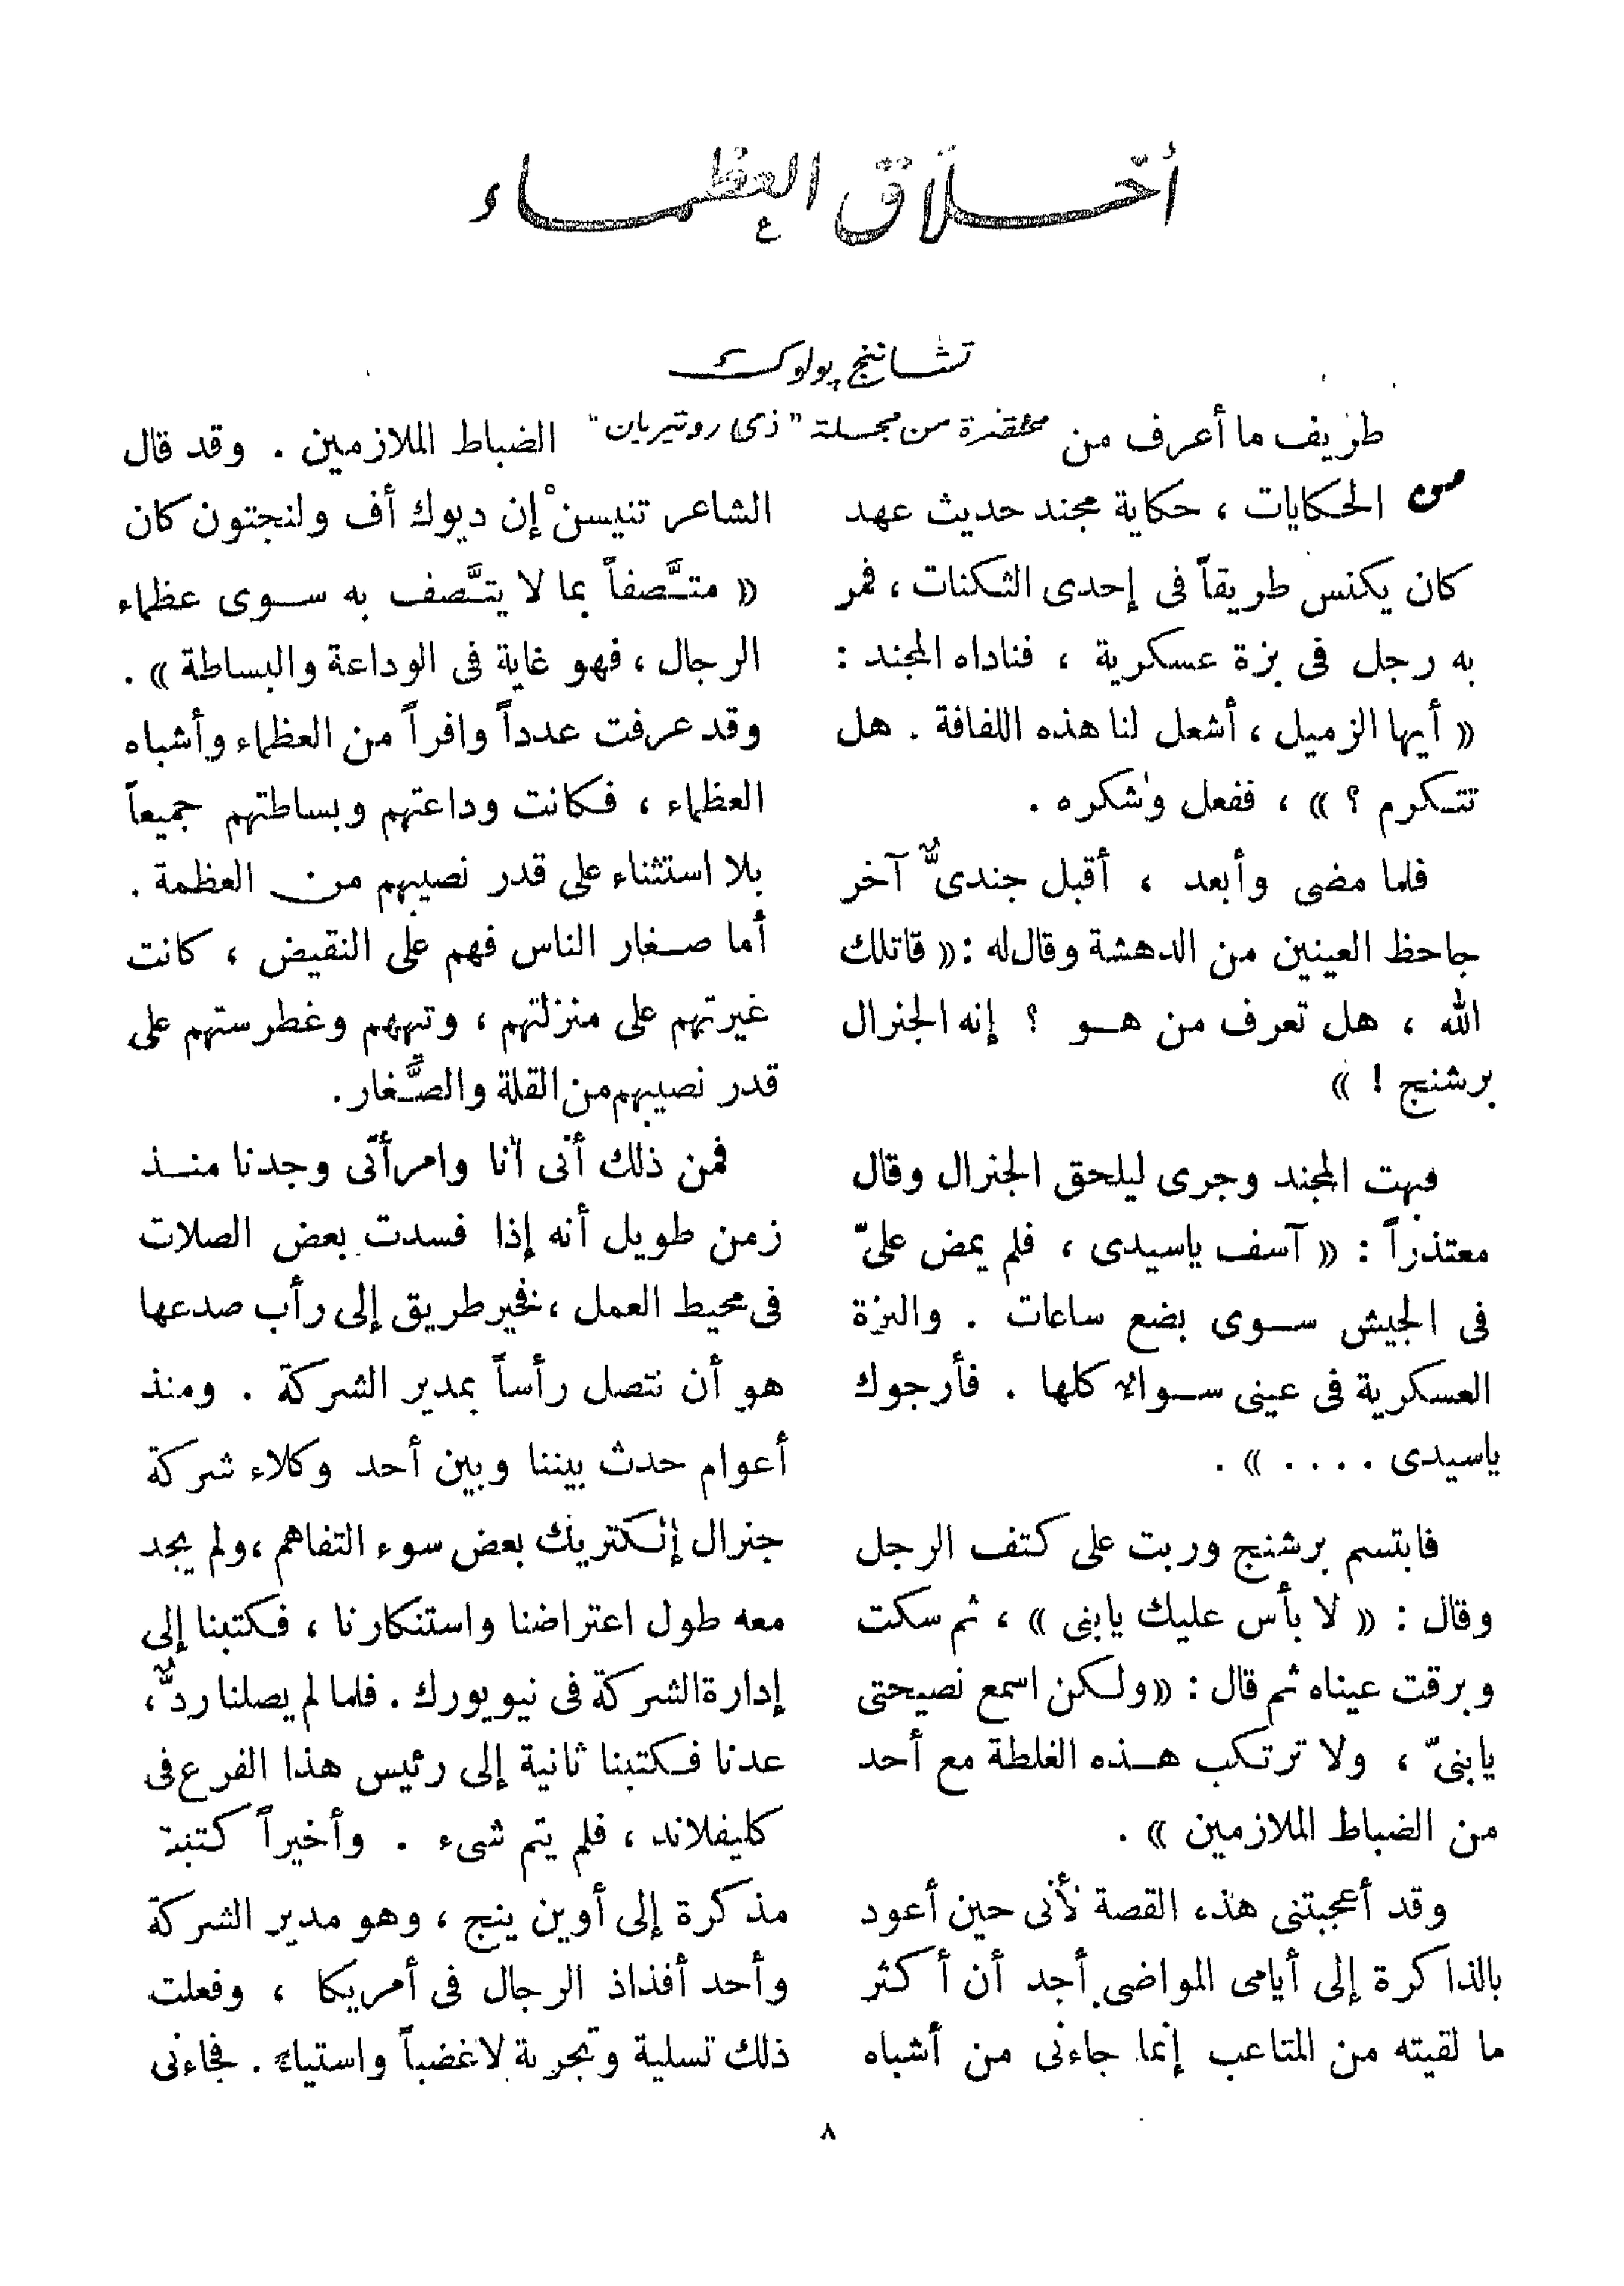 أخلاق العظماء
تشاننج پولوك
مختصرة من مجلة "ذى روتيريان"
من طريف ما أعرف من
الحكايات ، حكاية مجند حديث عهد
كان يكنس طريقاً فى إحدى الثكنات ، فمر
به رجل فى بزة عسكرية ، فناداه المجند :
« أيها الزميل ، أشعل لنا هذه اللفافة . هل
تتكرم ؟ » ، ففعل وشكره .
فلما مضى وأبعد ، أقبل جندىٌّ آخر
جاحظ العينين من الدهشة وقال له : « قاتلك
الله ، هل تعرف من هو ؟ إنه الجنرال
برشنج ! »
فبهت المجند وجرى ليلحق الجنرال وقال
معتذراً : « آسف ياسيدى ، فلم يمض علىّ
فى الجيش سوى بضع ساعات . والبزة
العسكرية فى عينى سوالا كلها . فأرجوك
ياسيدى .... » .
فابتسم برشنج وربت على كتف الرجل
وقال : « لا بأس عليك يابنى » ، ثم سكت
وبرقت عيناه ثم قال : « ولكن اسمع نصيحتى
يابنىّ ، ولا ترتكب هذه الغلطة مع أحد
من الضباط الملازمين » .
وقد أعجبتنى هذه القصة لأنى حين أعود
بالذاكرة إلى أيامى المواضى أجد أن أكثر
ما لقيته من المتاعب إنما جاءنى من أشباه
الضباط الملازمين . وقد قال
الشاعر تنيسنْ إن ديوك أف ولنجتون كان
« متَّصفاً بما لا يتَّصف به سوى عظماء
الرجال ، فهو غاية فى الوداعة والبساطة » .
وقد عرفت عدداً وافراً من العظماء وأشباه
العظماء ، فكانت وداعتهم وبساطتهم جميعاً
بلا استثناء على قدر نصيبهم من العظمة .
أما صغار الناس فهم على النقيض ، كانت
غيرتهم على منزلتهم ، وتيههم وغطرستهم على
قدر نصيبهم من القلة والصَّغار .
فمن ذلك أنى أنا وامرأتى وجدنا منذ
زمن طويل أنه إذا فسدت بعض الصلات
فى محيط العمل ، فخير طريق إلى رأب صدعها
هو أن نتصل رأساً بمدير الشركة . ومنذ
أعوام حدث بيننا وبين أحد وكلاء شركة
جنرال إلكتريك بعض سوء التفاهم ، ولم يجد
معه طول اعتراضنا واستنكارنا ، فكتبنا إلى
إدارة الشركة فى نيويورك . فلما لم يصلنا ردٌّ ،
عدنا فكتبنا ثانية إلى رئيس هذا الفرع فى
كليفلاند ، فلم يتم شىء . وأخيراً كتبت
مذكرة إلى أوين ينج ، وهو مدير الشركة
وأحد أفذاذ الرجال فى أمريكا ، وفعلت
ذلك تسلية وتجربة لا غضباً واستياء . فجاءنى
٨